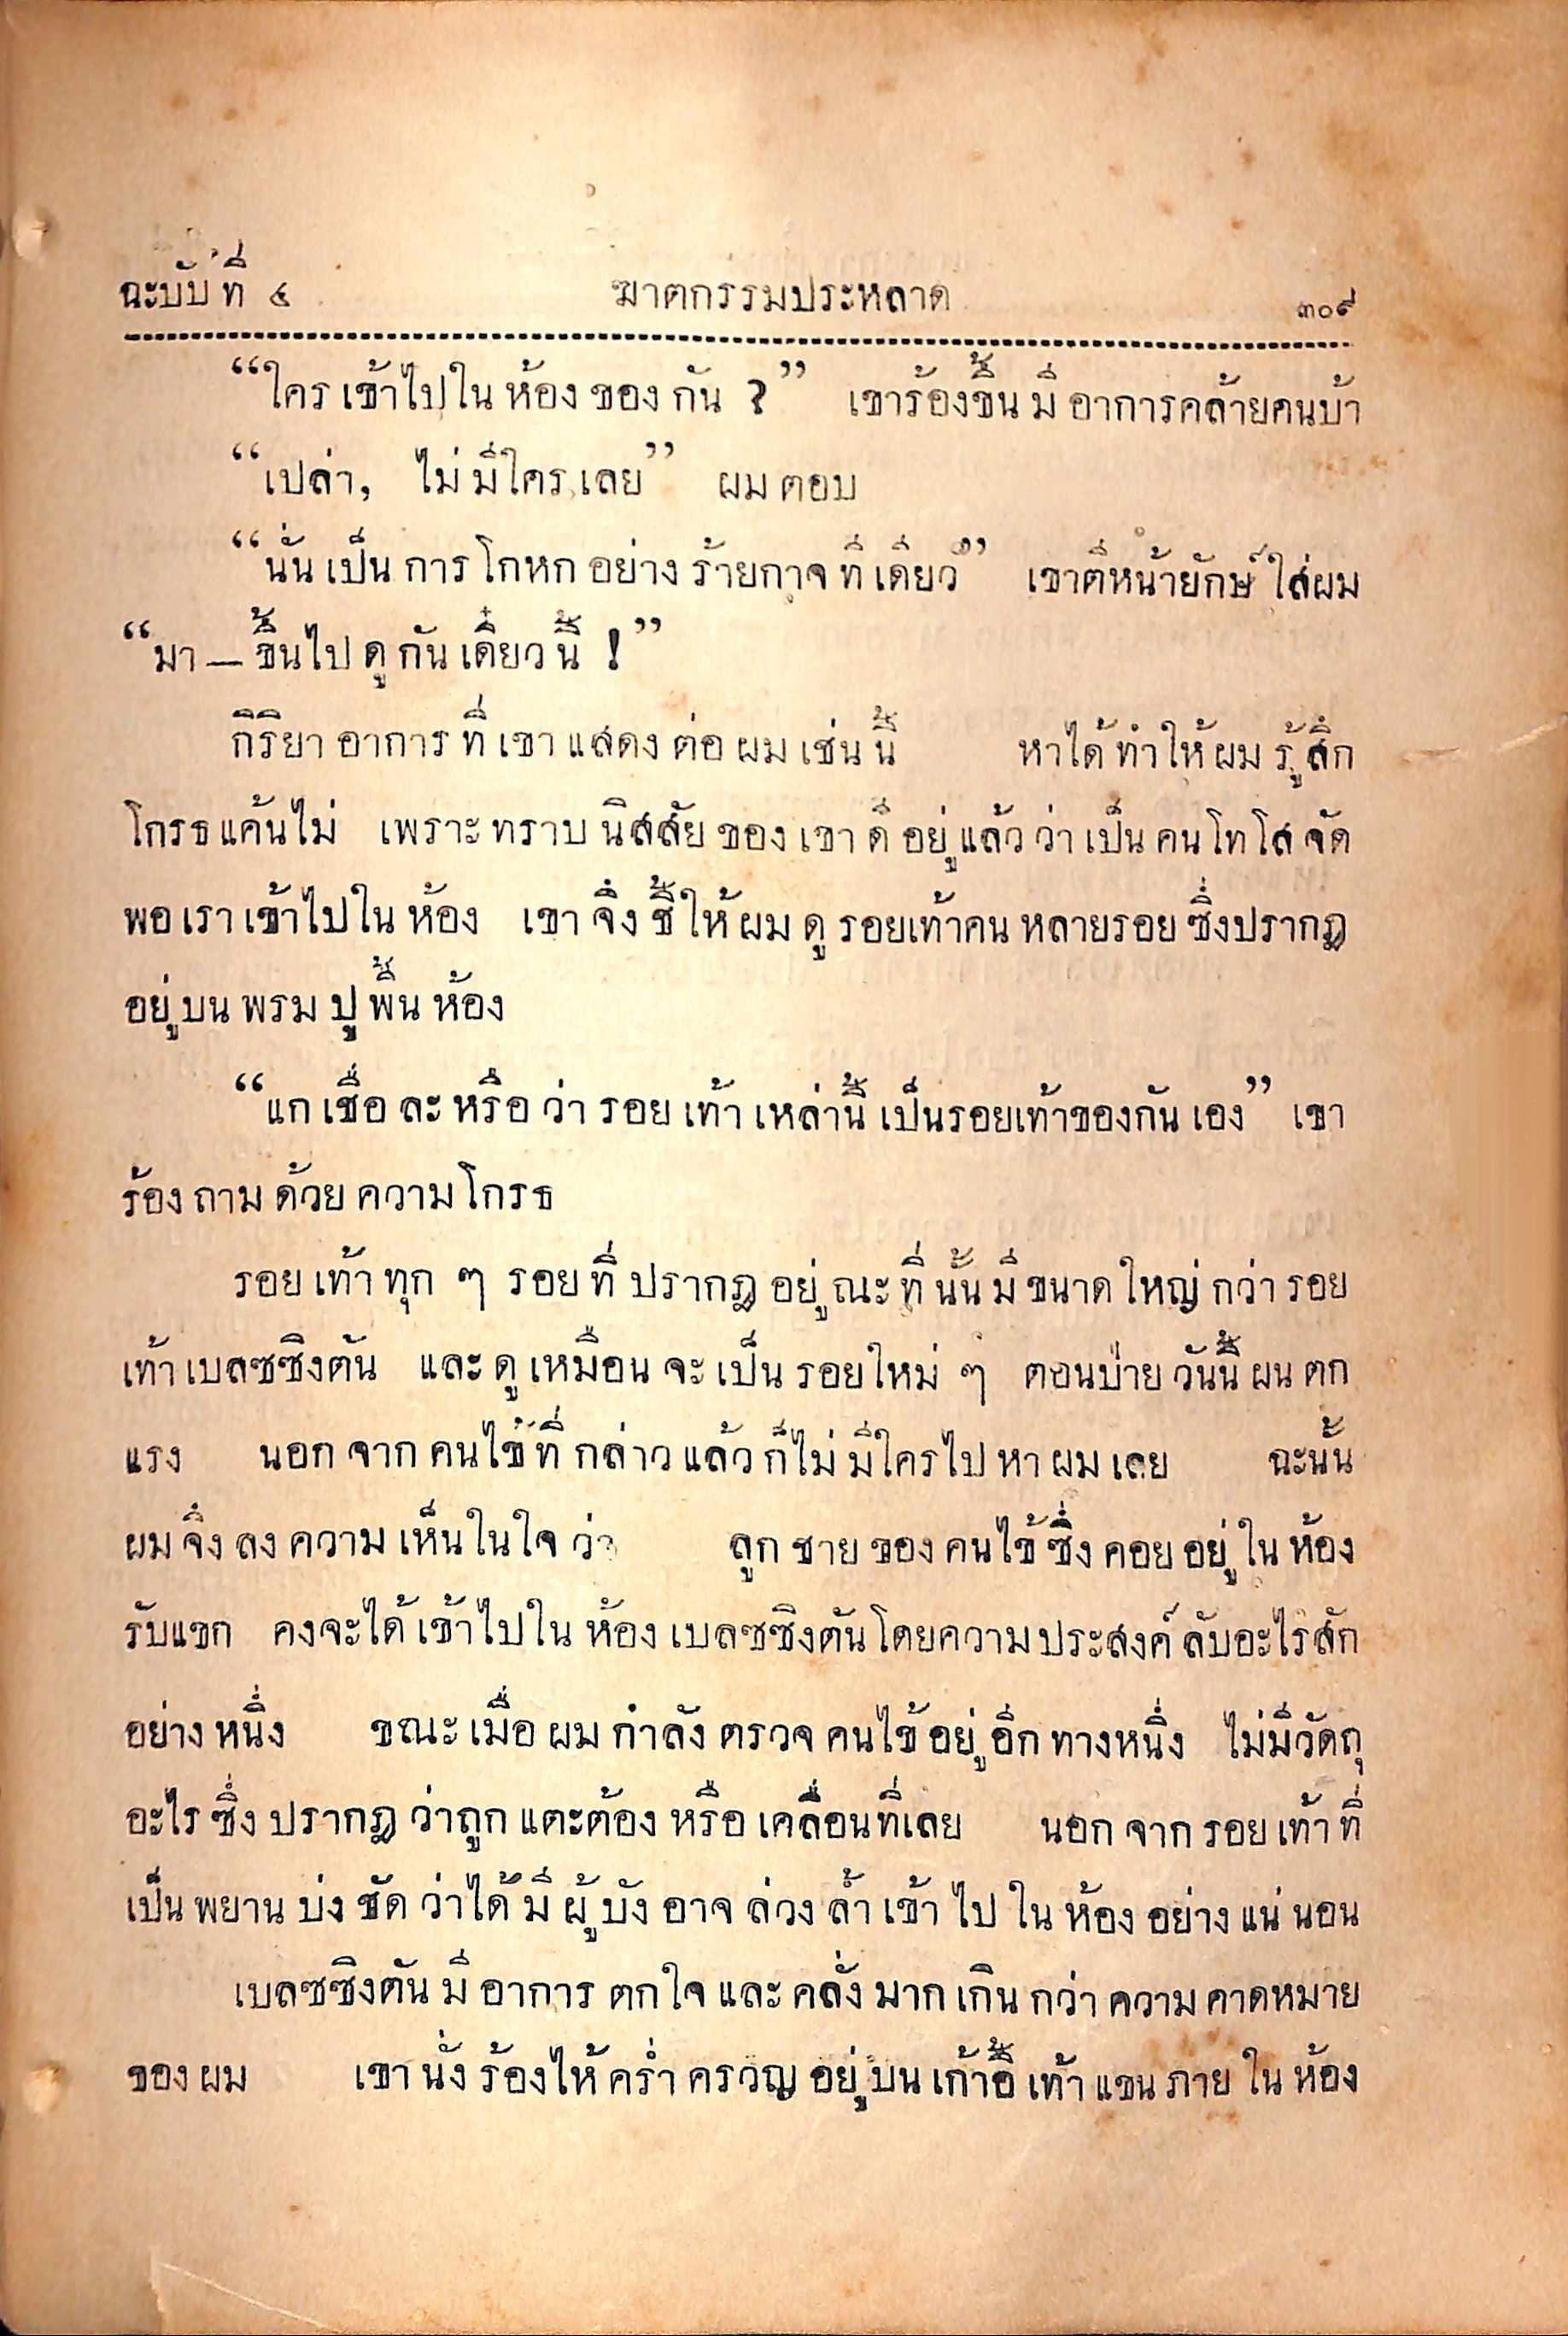 ฉะบับที่ ๔ ฆาตกรรมประหลาด ๓๐๙
“ใครเข้าไปในห้องของกัน ?” เขาร้องขึ้นมีอาการคล้ายคนบ้า
“เปล่า, ไม่มีใครเลย” ผมตอบ
“นั่นเป็นการโกหกอย่างร้ายกาจทีเดียว” เขาตีหน้ายักษ์ใส่ผม
“มา—ขึ้นไปดูกันเดี๋ยวนี้ !”
กิริยาอาการที่เขาแสดงต่อผมเช่นนี้ หาได้ทำให้ผมรู้สึก
โกรธแค้นไม่ เพราะทราบนิสสัยของเขาดีอยู่แล้วว่าเป็นคนโทโสจัด
พอเราเข้าไปในห้อง เขาจึงชี้ให้ผมดูรอยเท้าคนหลายรอยซึ่งปรากฏ
อยู่บนพรมปูพื้นห้อง
“แกเชื่อละหรือว่ารอยเท้าเหล่านี้เป็นรอยเท้าของกันเอง” เขา
ร้องถามด้วยความโกรธ
รอยเท้าทุก ๆ รอยที่ปรากฏอยู่ณะที่นั้นมีขนาดใหญ่กว่ารอย
เท้าเบลซซิงตัน และดูเหมือนจะเป็นรอยใหม่ ๆ ตอนบ่ายวันนี้ฝนตก
แรง นอกจากคนไข้ที่กล่าวแล้วก็ไม่มีใครไปหาผมเลย ฉะนั้น
ผมจึงลงความเห็นในใจว่า ลูกชายของคนไข้ซึ่งคอยอยู่ในห้อง
รับแขก คงจะได้เข้าไปในห้องเบลซซิงตันโดยความประสงค์ลับอะไรสัก
อย่างหนึ่ง ขณะเมื่อผมกำลังตรวจคนไข้อยู่อีกทางหนึ่ง ไม่มีวัดถุ
อะไรซึ่งปรากฏว่าถูกแตะต้องหรือเคลื่อนที่เลย นอกจากรอยเท้าที่
เป็นพยานบ่งชัดว่าได้มีผู้บังอาจล่วงล้ำเข้าไปในห้องอย่างแน่นอน
เบลซซิงตันมีอาการตกใจและคลั่งมากเกินกว่าความคาดหมาย
ของผม เขานั่งร้องไห้คร่ำครวญอยู่บนเก้าอี้เท้าแขนภายในห้อง